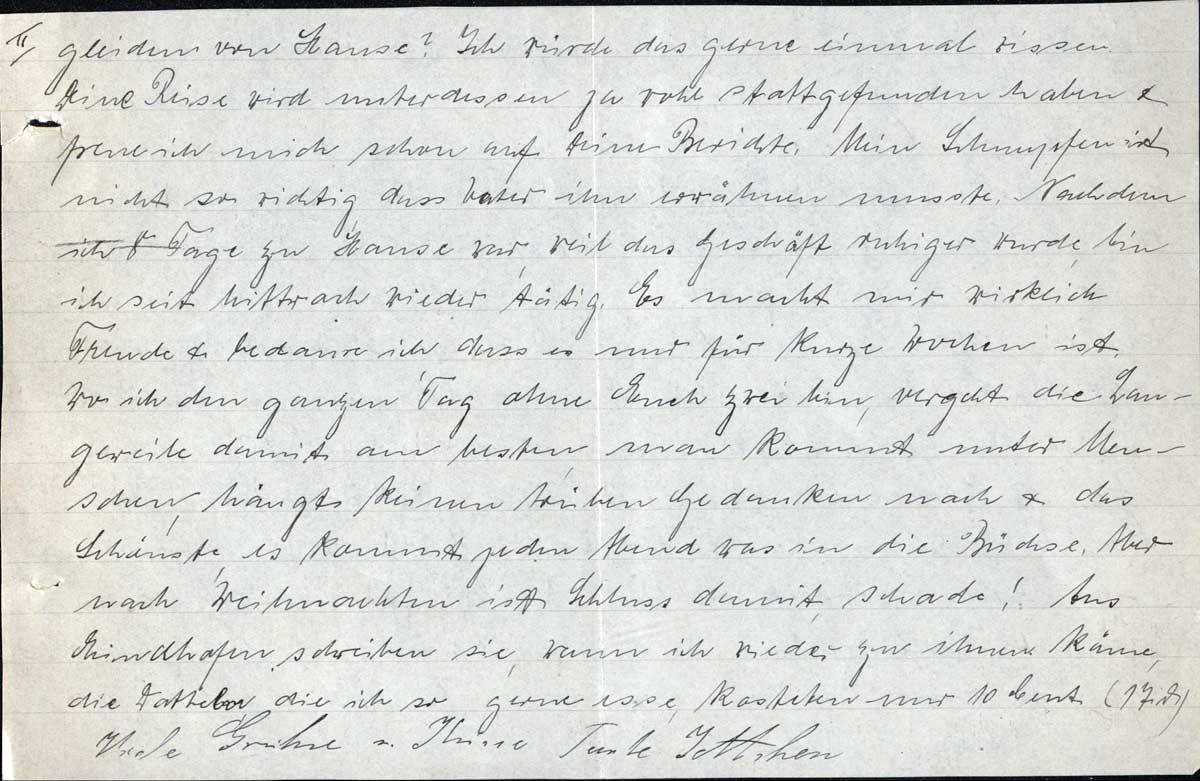 II/ gleidern von Hause? Ich würde das gerne einmal wissen
Deine Reise wird unterdessen ja wohl stattgefunden haben &
freue ich mich schon auf Deine Berichte. Mein Schnupfen ist
nicht so richtig dass Vater ihn erwähnen musste. Nachdem
ich 8 Tage zu Hause war, weil das Geschäft ruhiger wurde, bin
ich seit Mittwoch wieder tätig. Es macht mir wirklich
Freude & bedaure ich dass es nur für kurze Wochen ist.
Wo ich den ganzen Tag ohne Euch zwei bin, vergeht die Lan-
geweile damit am besten, man kommt unter Men-
schen, hängt keinen trüben Gedanken nach & das
Schönste, es kommt jeden Abend was in die Büchse. Aber
nach Weihnachten ist Schluss damit, schade! Aus
Eindhofen schreiben sie, wann ich wieder zu ihnen käme,
die Datteln die ich so gerne esse, kosteten nur 10 Cent (17 d)
Viele Grüsse u. Küsse Tante Jettchen